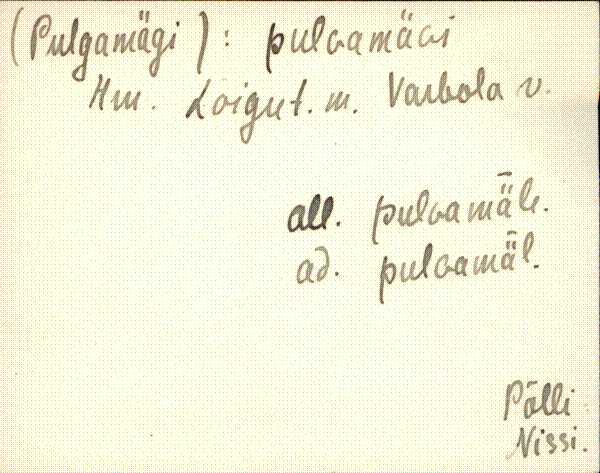 (Pulgamägi): pulɢamäɢi
Hm. Loigut. m. Varbola v.
all. pulɢamǟle.
ad. pulɢamǟl.
Põlli
Nissi.